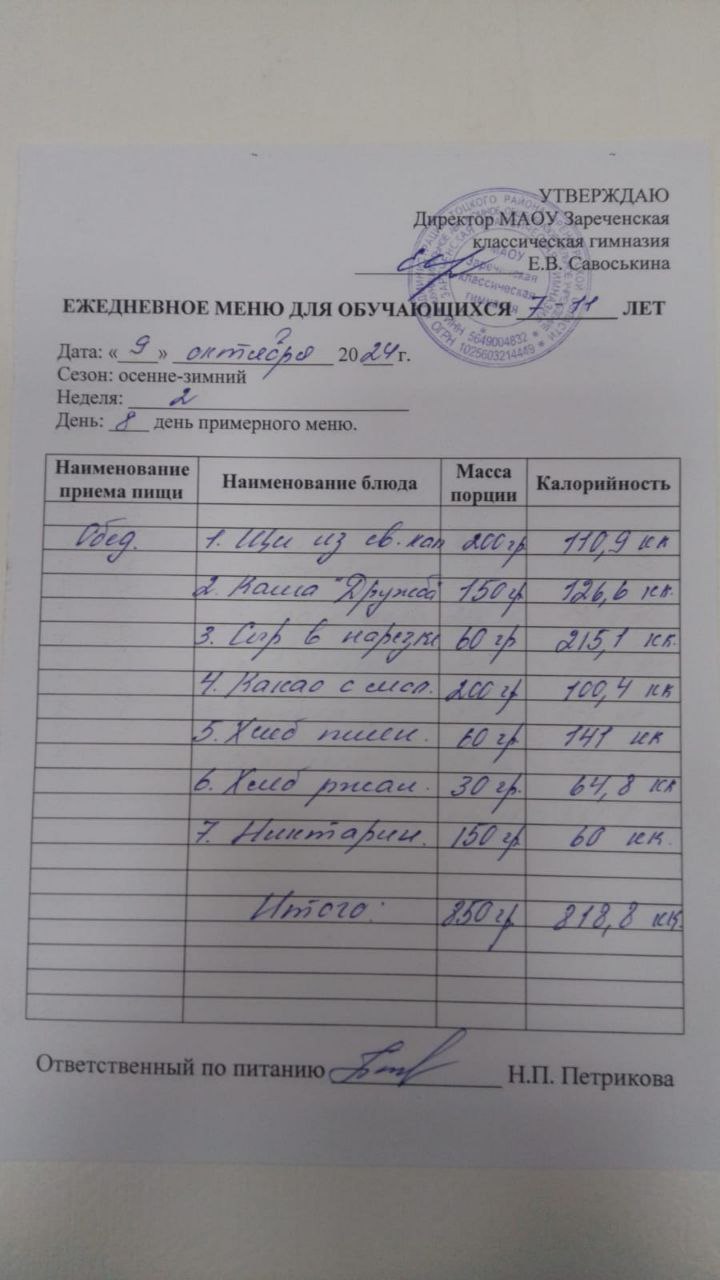 УТВЕРЖДАЮ
Директор МАОУ Зареченская
классическая гимназия
Е.В. Савоськина
МАОУ
Зареченская
классическая
гимназия
ИНН 5649004832 * ОГРН 1025603214449 *
ЕЖЕДНЕВНОЕ МЕНЮ ДЛЯ ОБУЧАЮЩИХСЯ 7 - 11 ЛЕТ
Дата: «9» октября 2024 г.
Сезон: осенне-зимний
Неделя: 2
День: 8 день примерного меню.
Наименование приема пищи Наименование блюда Масса порции Калорийность
Обед. 1. Щи из св. кап 200 гр 110,9 кк
2. Каша "Дружба" 150 гр 126,6 кк.
3. Сыр в нарезке 60 гр 215,1 кк.
4. Какао с мол. 200 гр 100,4 кк
5. Хлеб пшен. 60 гр 141 кк
6. Хлеб ржан. 30 гр. 64,8 кк
7. Никтарин. 150 гр 60 кк.
Итого: 850 гр 818,8 кк.
Ответственный по питанию Н.П. Петрикова